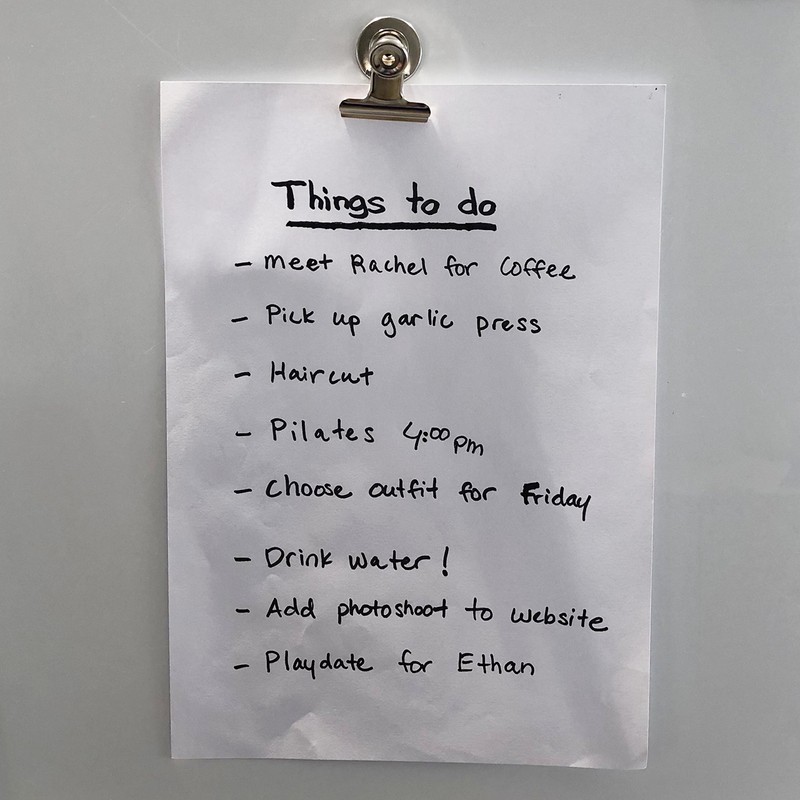 Things to do
- meet Rachel for Coffee
- Pick up garlic press
- Haircut
- Pilates 4:00 pm
- Choose outfit for Friday
- Drink water!
- Add photoshoot to website
- Playdate for Ethan